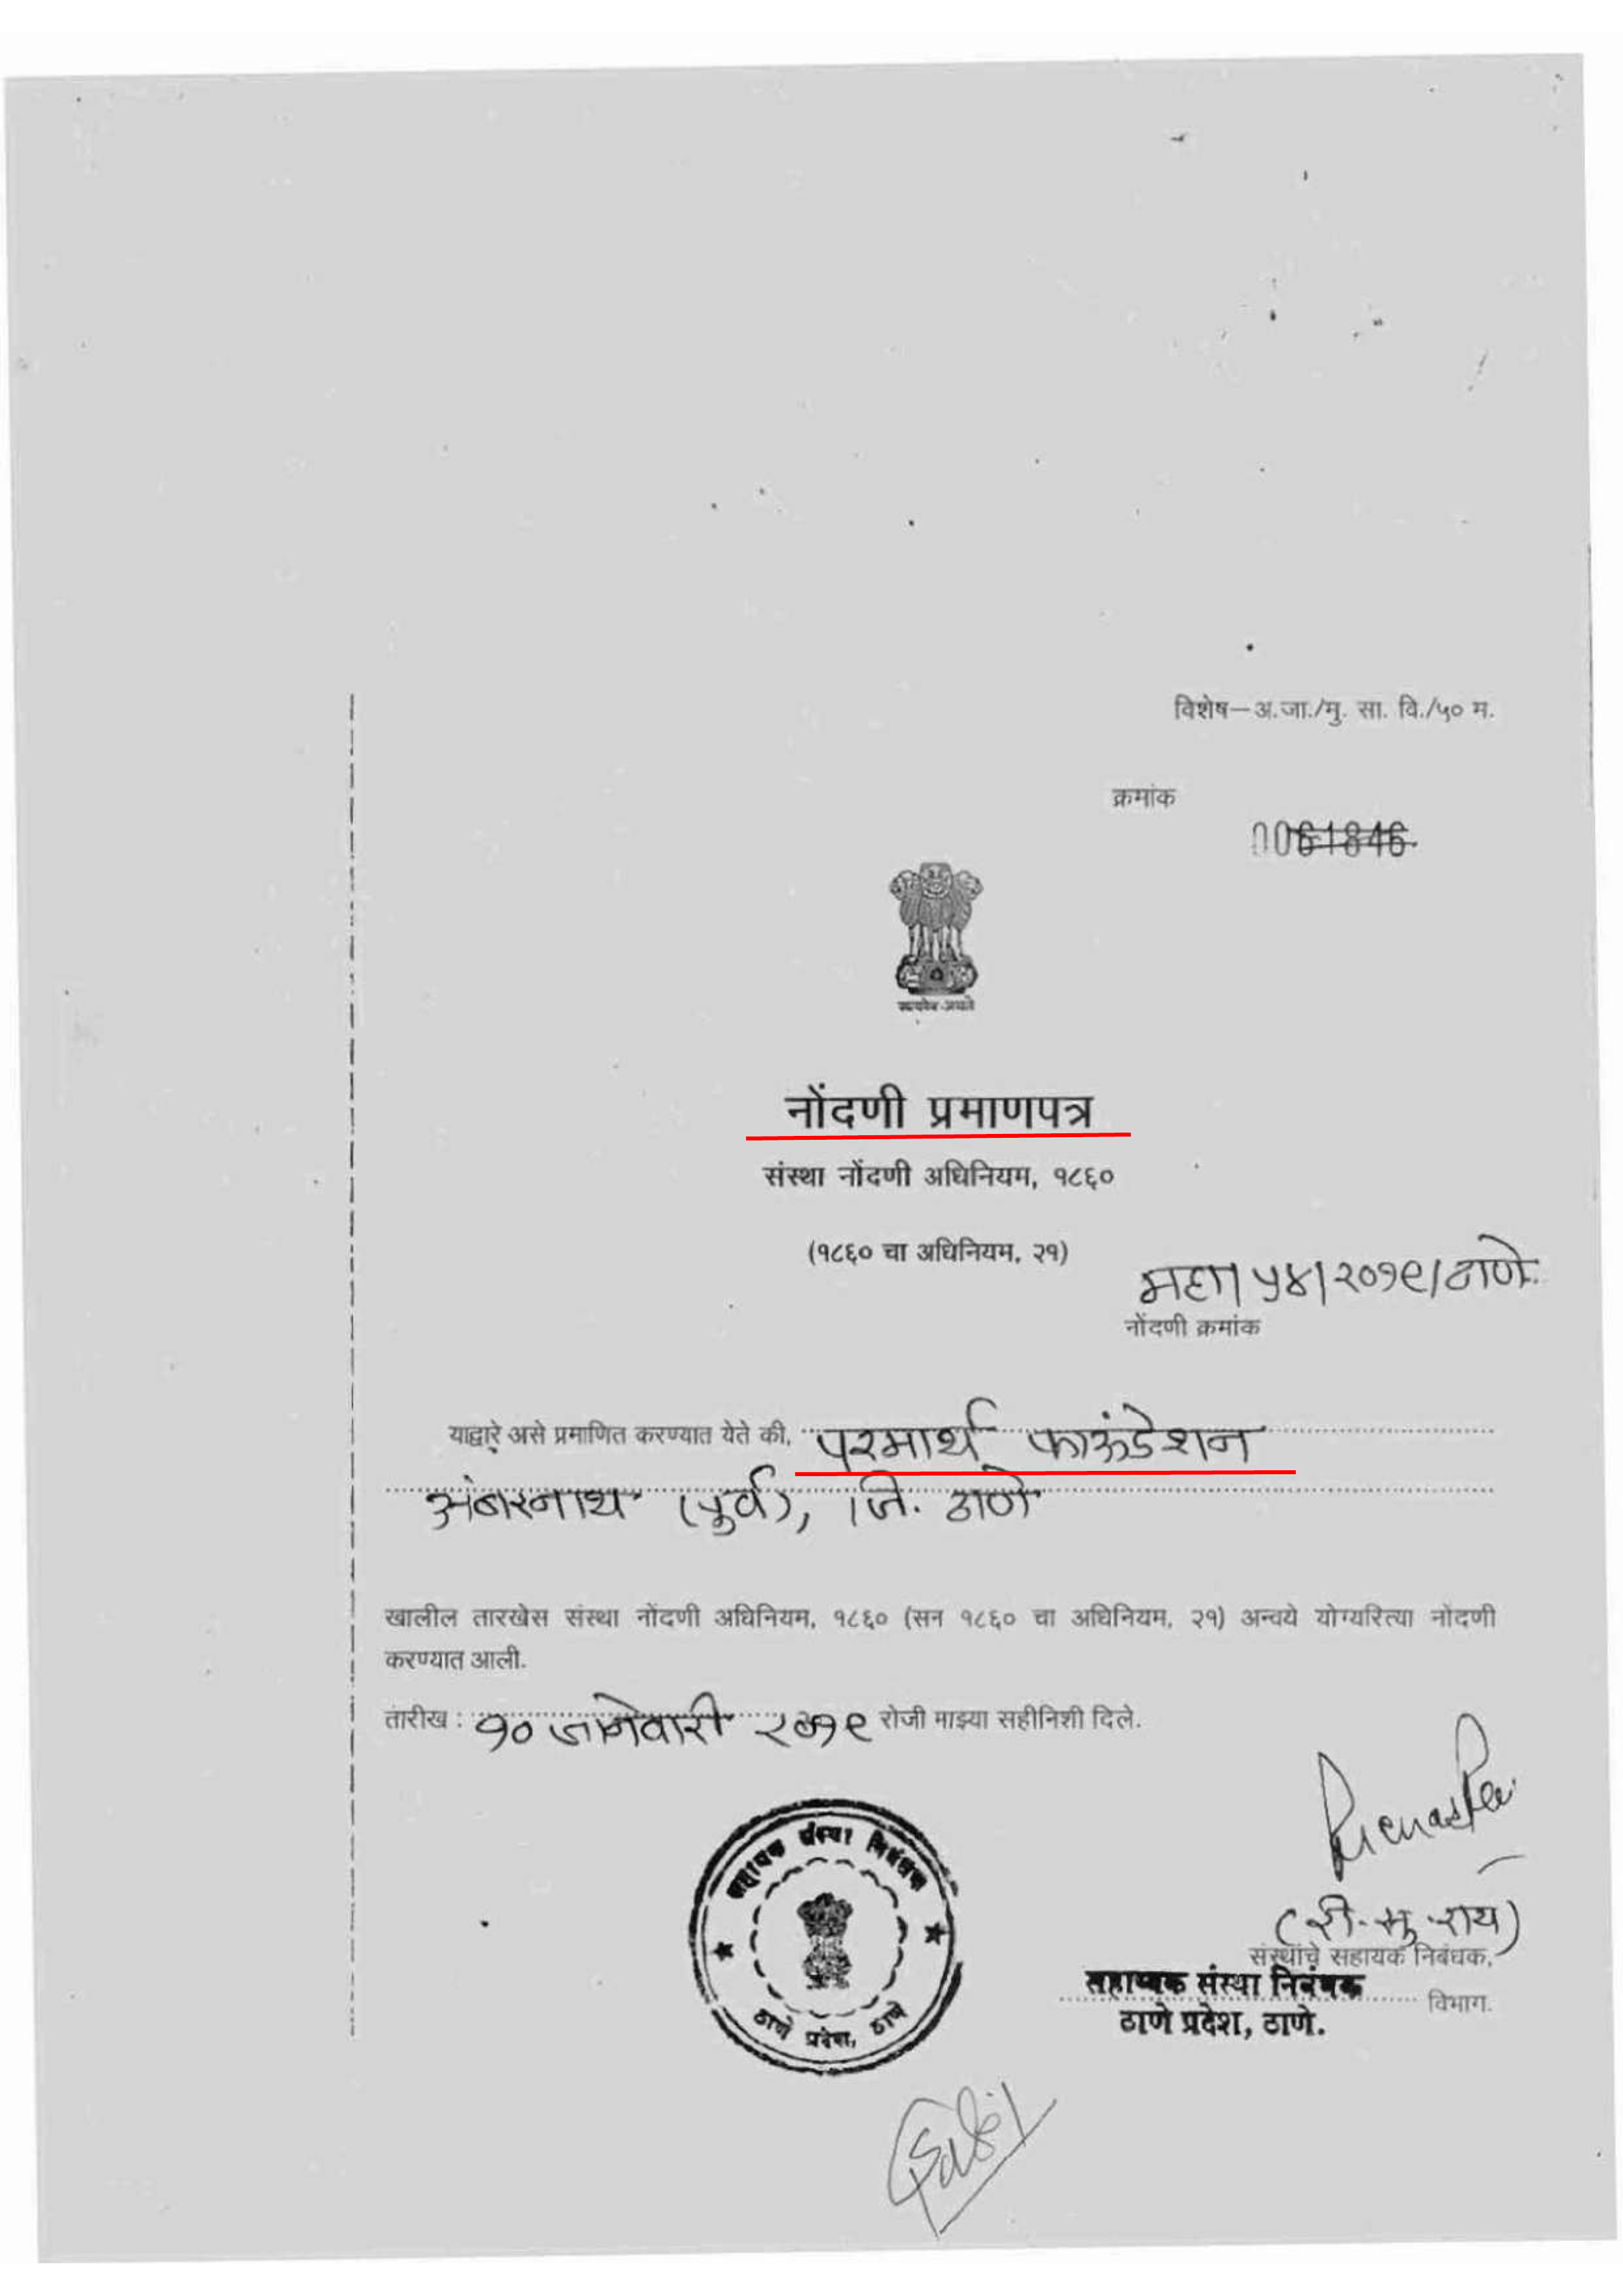 विशेष—अ.जा./मु. सा. वि./५० म.
क्रमांक
0061846
सत्यमेव जयते
नोंदणी प्रमाणपत्र
संस्था नोंदणी अधिनियम, १८६०
(१८६० चा अधिनियम, २१)
महा/५४/२०१९/ठाणे.
नोंदणी क्रमांक
याद्वारे असे प्रमाणित करण्यात येते की, परमार्थ फाऊंडेशन
अंबरनाथ (पुर्व), जि. ठाणे
खालील तारखेस संस्था नोंदणी अधिनियम, १८६० (सन १८६० चा अधिनियम, २१) अन्वये योग्यरित्या नोंदणी
करण्यात आली.
तारीख : १० जानेवारी २०१९ रोजी माझ्या सहीनिशी दिले.
सहायक संस्था निबंधक
ठाणे प्रदेश, ठाणे
(री. मु. राय)
संस्थांचे सहायक निबंधक,
सहाय्यक संस्था निबंधक
विभाग.
ठाणे प्रदेश, ठाणे.